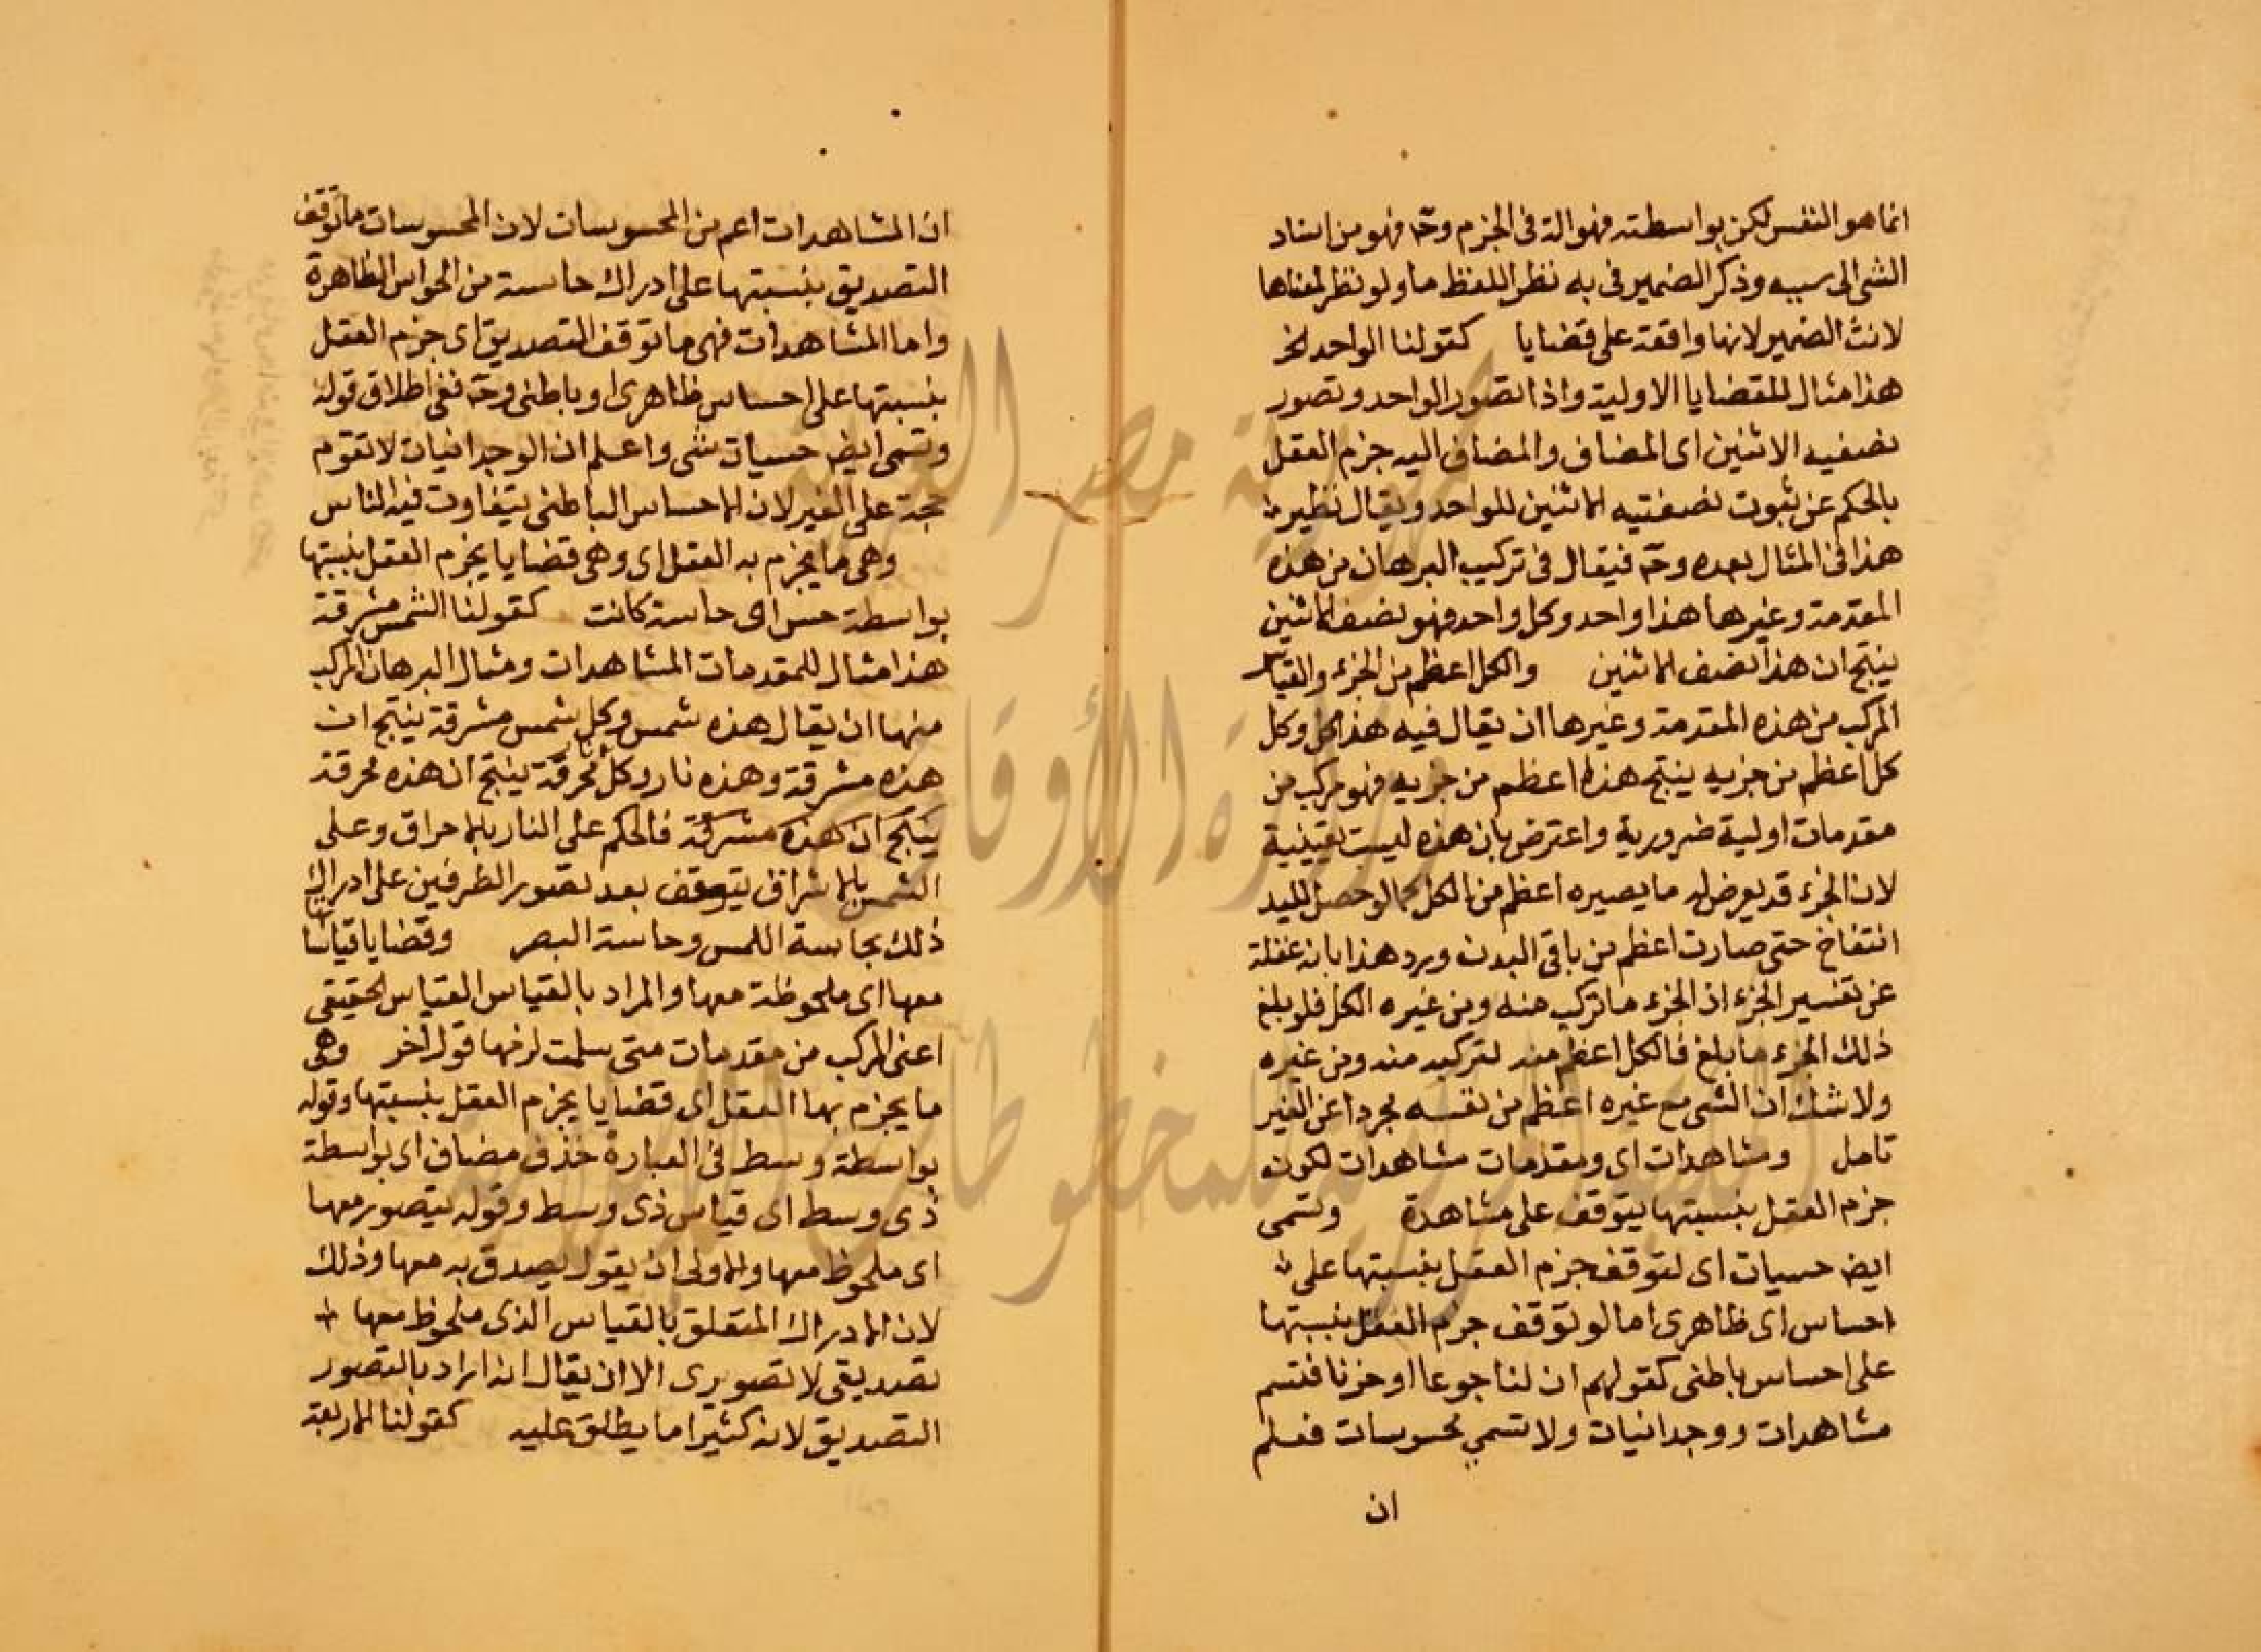 انما هو النفس لكن بواسطته فهو الة فى الجزم وحّ فهو من اسناد
الشى الى سببه وذكر الضمير فى به نظر اللفظ ما ولو نظر لمعناها
لانث الضمير لانها واقعة على قضايا كقولنا الواحد الخ
هذا مثال للقضايا الاولية واذا تصور الواحد وتصور
نصفيه الاثنين اى المضاف والمضاف اليه جزم العقل
بالحكم عن ثبوت نصفتيه الاثنين للواحد ويقال نظير
هذا فى المثال بعده وحّ فيقال فى تركيب البرهان من هذه
المقدمة وغيرها هذا واحد وكل واحد فهو نصف الاثنين
ينتج ان هذا نصف الاثنين والكل اعظم من الجزء والقياس
المركب من هذه المقدمة وغيرها ان يقال فيه هذا كل وكل
كل اعظم من جزيه ينتج هذا اعظم من جزيه فهو مركب من
مقدمات اولية ضرورية واعترض بان هذه ليست يقينية
لان الجزء قد يعرض له ما يصيره اعظم من الكل كما لو حصل لليد
انتفاخ حتى صارت اعظم من باقى البدن ويرد هذا بانه غفلة
عن تفسير الجزء اذ الجزء ما تركب منه ومن غيره الكل فلو بلغ
ذلك الجزء ما بلغ فالكل اعظم منه لتركبه منه ومن غيره
ولا شك ان الشى مع غيره اعظم من نفسه مجردا عن الغير
تامل ومشاهدات اى ومقدمات مشاهدات لكون
جزم العقل بنسبتها يتوقف على مشاهدة وتسمى
ايض حسيات اى لتوقف جزم العقل بنسبتها على
احساس اى ظاهرى اما لو توقف جزم العقل بنسبتها
على احساس باطنى كقولهم ان لنا جوعا او حزنا فتسم
مشاهدات ووجدانيات ولا تسمي محسوسات فعلم
ان
ان المشاهدات اعم من المحسوسات لان المحسوسات ما توقف
التصديق بنسبتها على ادراك حاسة من الحواس الظاهرة
واما المشاهدات فهى ما توقف التصديق اى جزم العقل
بنسبتها على احساس ظاهرى او باطنى وحّ ففى اطلاق قوله
وتسمى ايض حسيات شى واعلم ان الوجدانيات لا تقوم
حجة على الغير لان الاحساس الباطنى يتفاوت فيه الناس
وهى ما يجزم به العقل اى وهى قضايا يجزم العقل بنسبتها
بواسطة حس اى حاسة كانت كقولنا الشمس مشرقة
هذا مثال للمقدمات المشاهدات ومثال البرهان المركب
منها ان يقال هذه شمس وكل شمس مشرقة ينتج ان
هذه مشرقة وهذه نار وكل نار محرقة ينتج ان هذه محرقة
ينتج ان هذه مشرقة فالحكم على النار بالاحراق وعلى
الشمس بالاشراق يتوقف بعد تصور الطرفين على ادراك
ذلك بحاسة اللمس وحاسة البصر وقضايا قياساتها
معها اى ملحوظة معها والمراد بالقياس القياس الحقيقى
اعنى المركب من مقدمات متى سلمت لزمها قول اخر وهى
ما يجزم بها العقل اى قضايا يجزم العقل بنسبتها وقوله
بواسطة وسط فى العبارة حذف مضاف اى بواسطة
ذى وسط اى قياس ذى وسط وقوله يتصور معها
اى ملحوظ معها والاولى ان يقول يصدق به معها وذلك
لان الادراك المتعلق بالقياس الذى ملحوظ معها
تصديقى لا تصويرى الا ان يقال انه اراد بالتصور
التصديق لانه كثيرا ما يطلق عليه كقولنا الاربعة